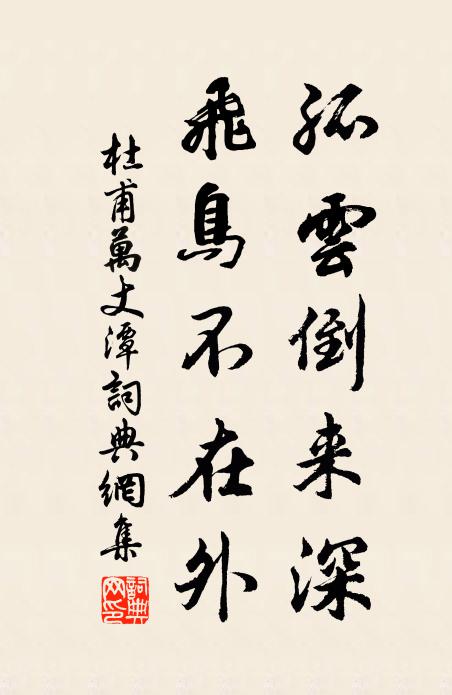 孤雲倒来深
飛鳥不在外
杜甫萬丈潭詞典網集
詞典網印